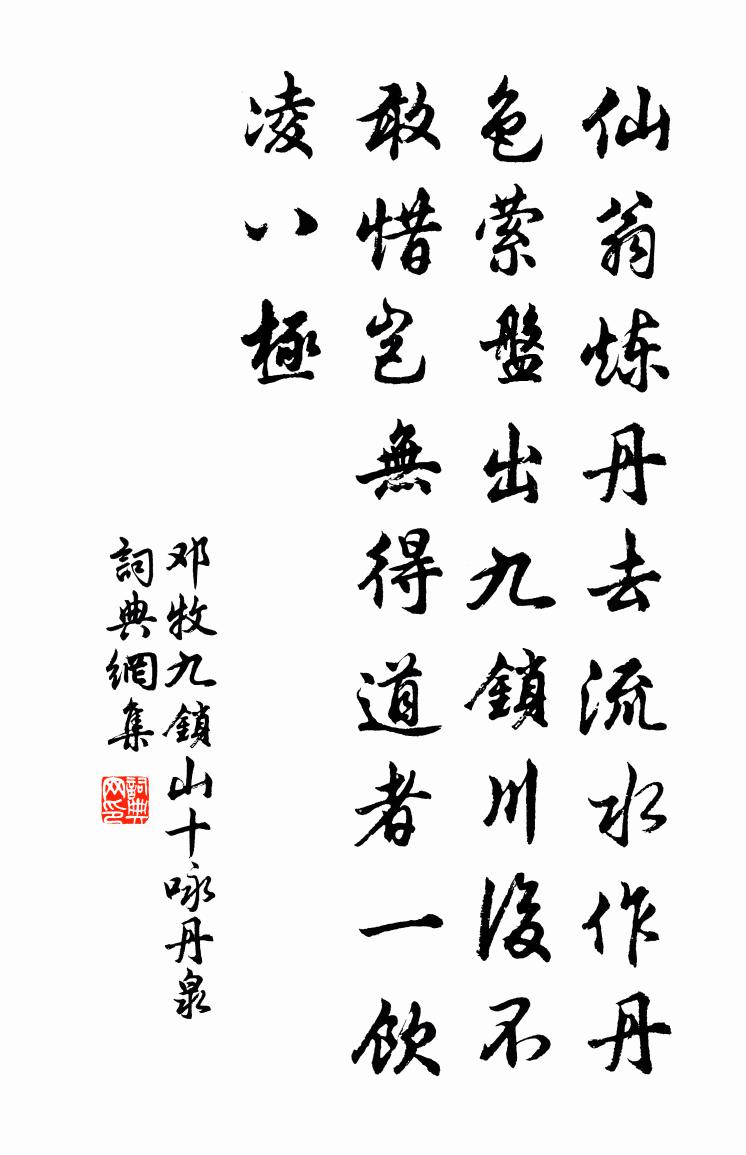 仙翁炼丹去流水作丹
色萦盤出九鎖川復不
敢惜岂無得道者一飲
凌八極
邓牧九鎖山十咏丹泉
詞典網集
詞典网印